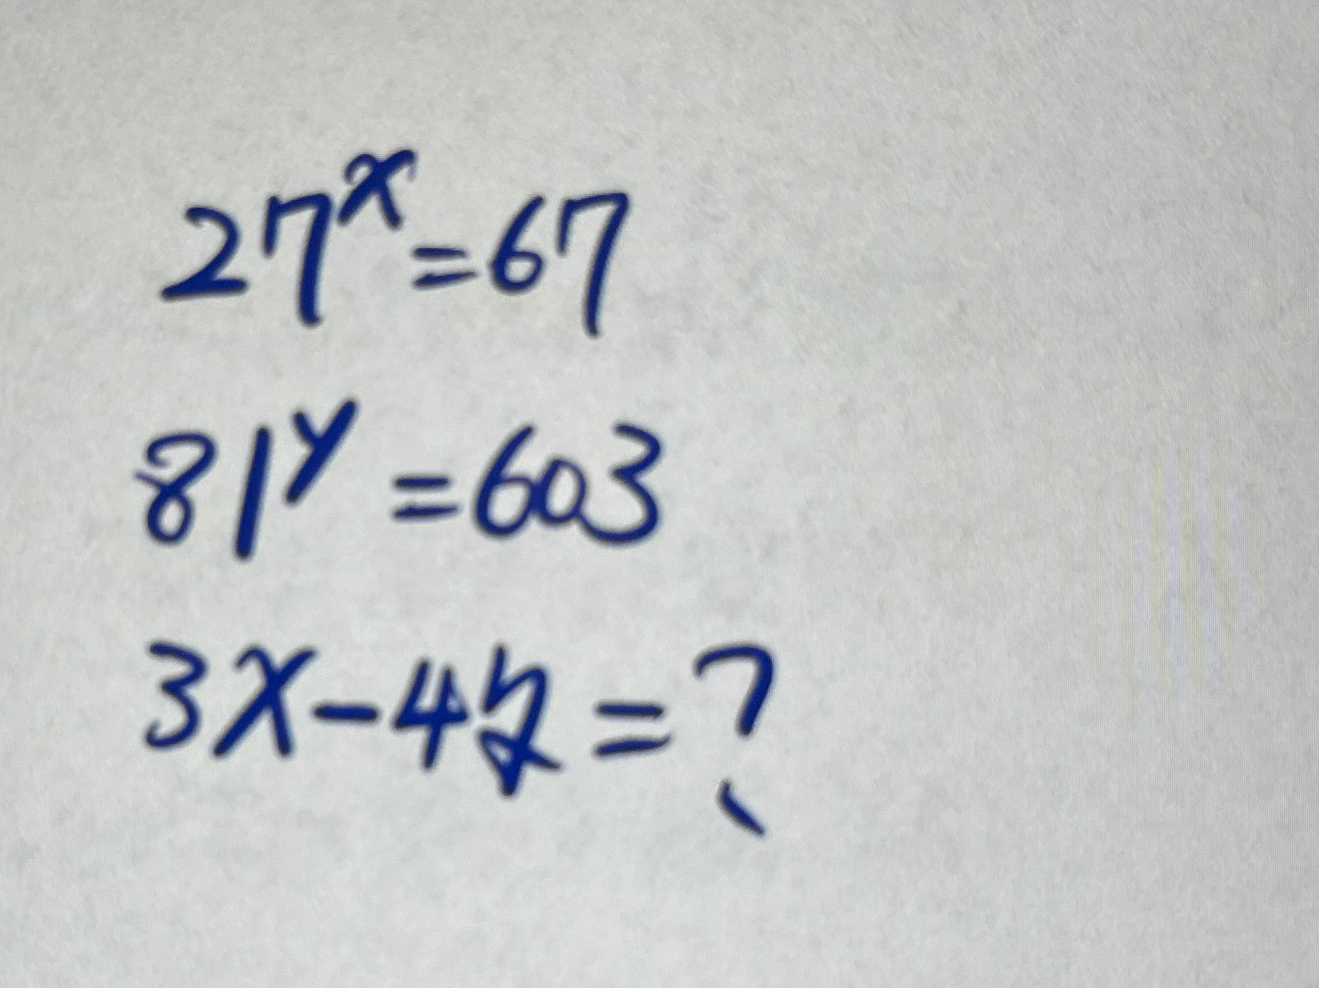 27^x=67
81^y=603
3x-4y=?